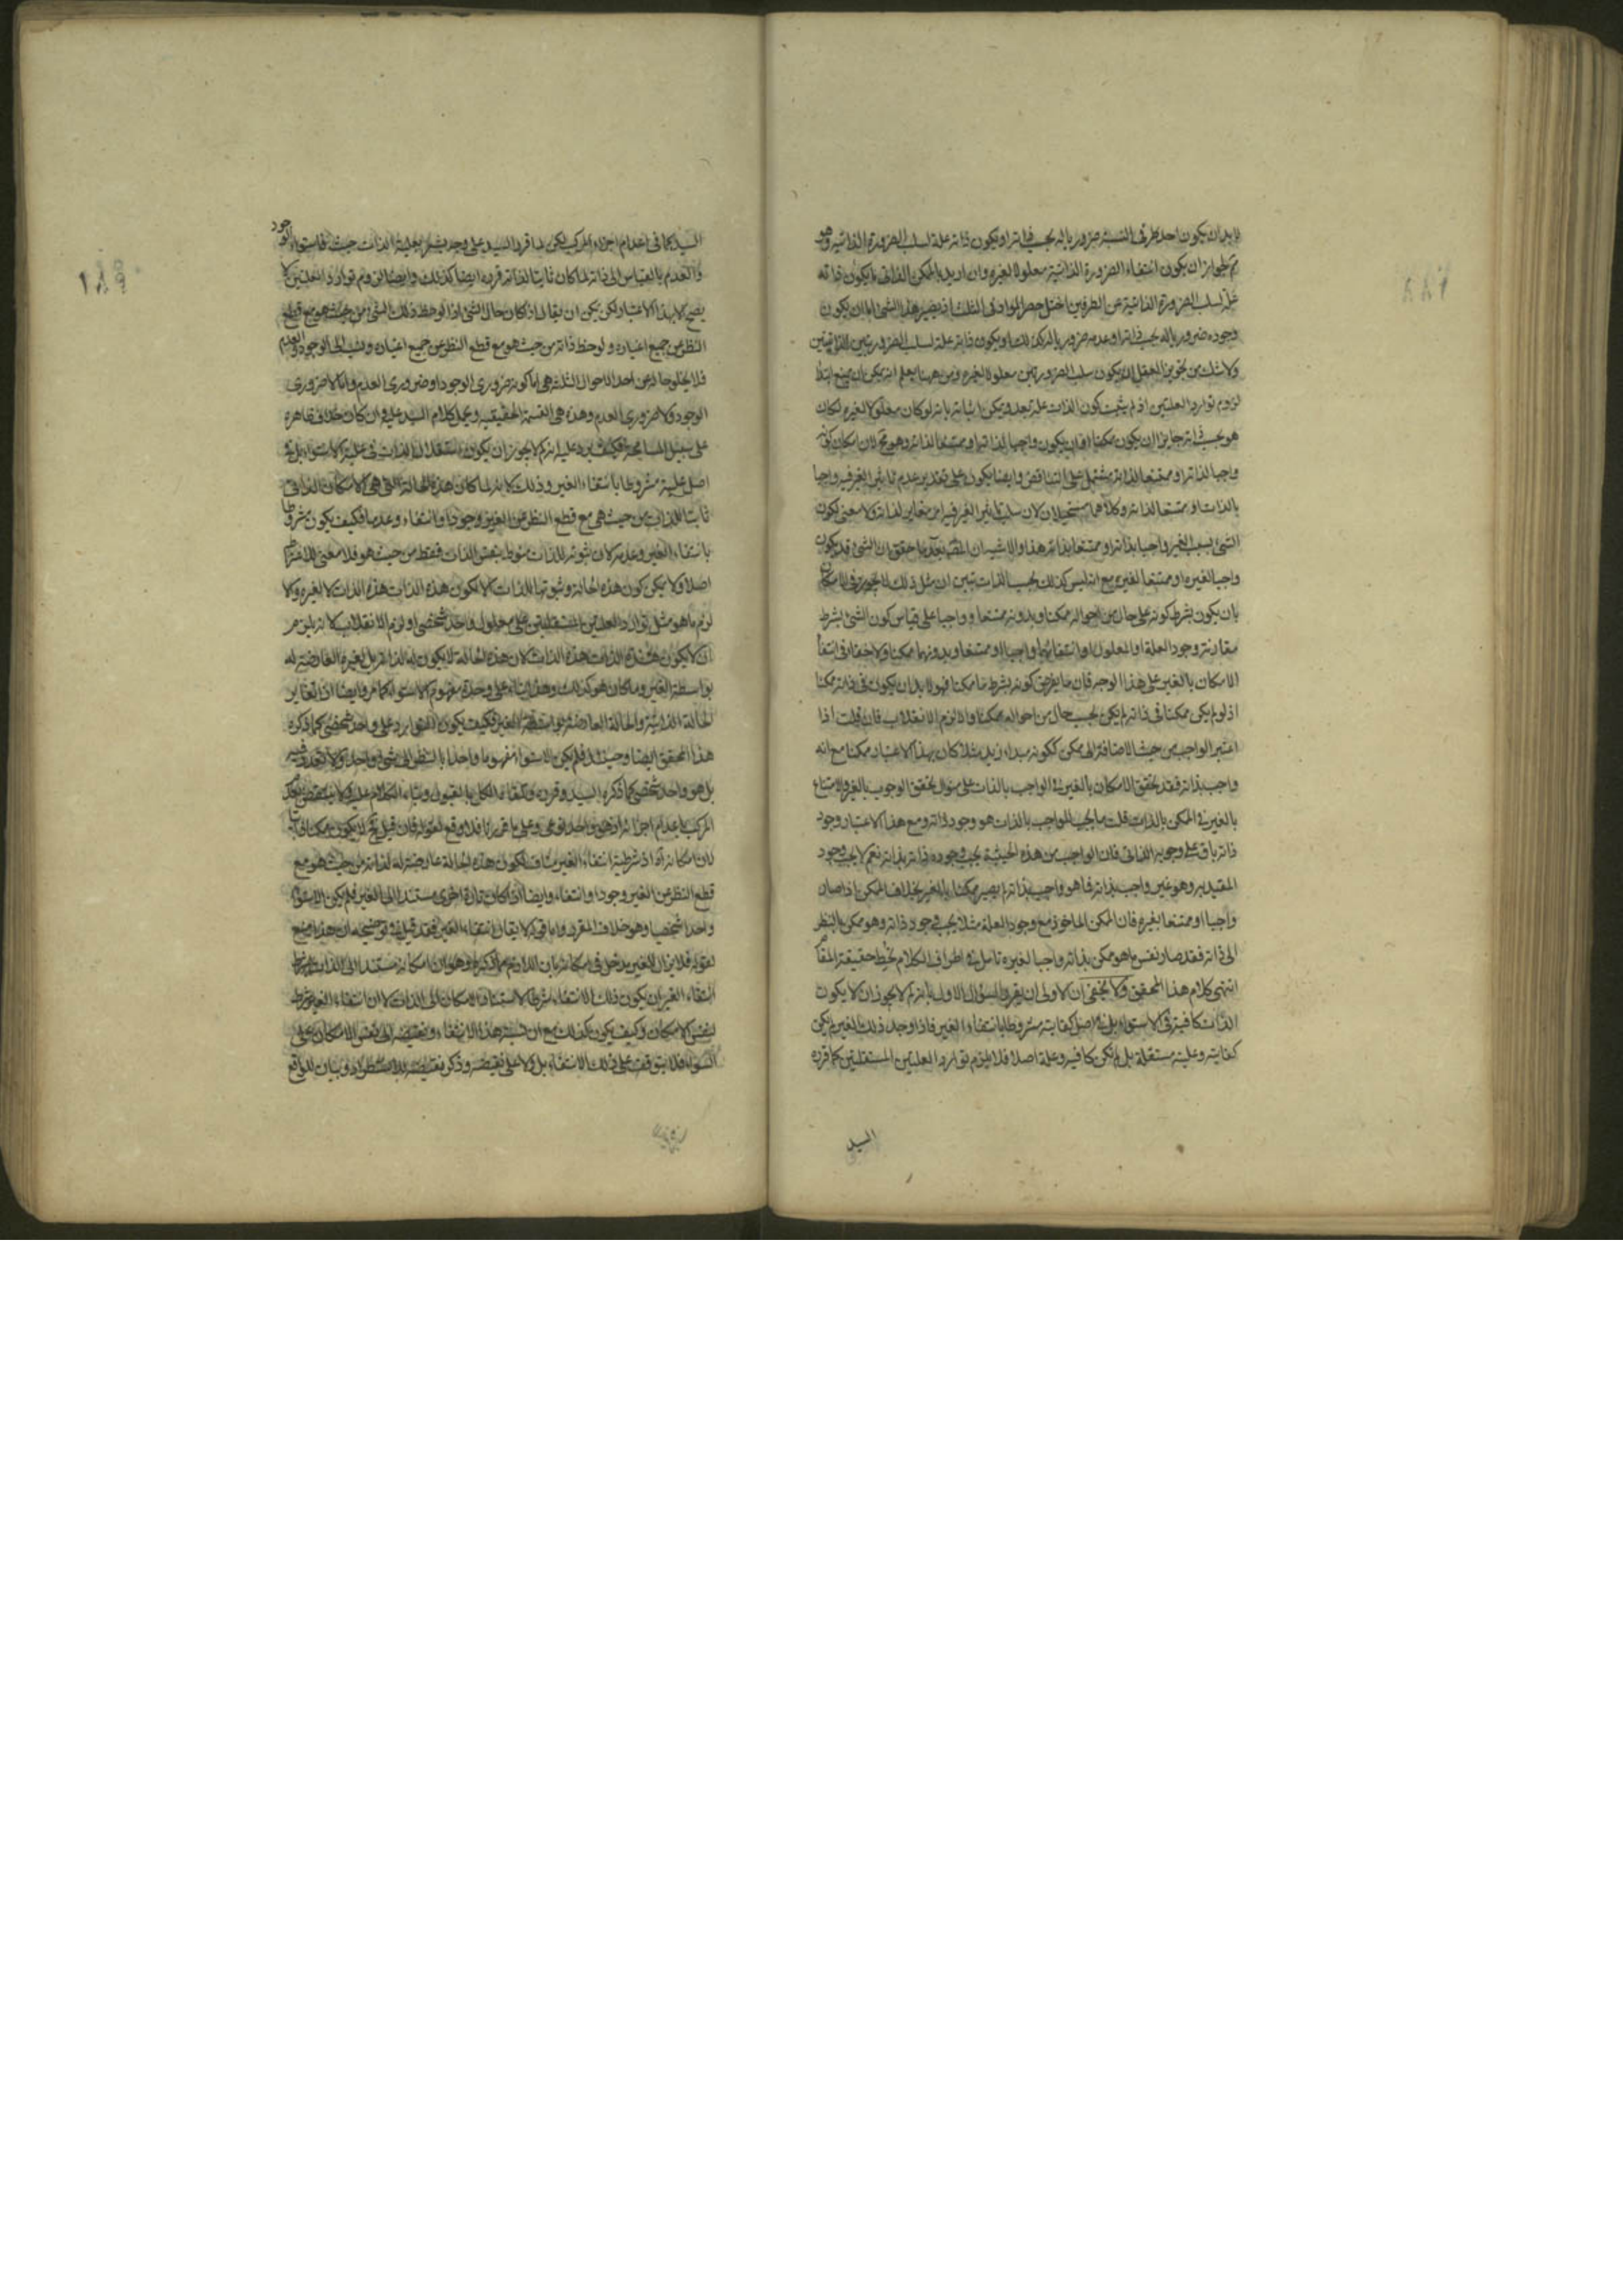 لا بد ان يكون احد طرفى النسبة ضروريا له بحسب ذاته او يكون ذاته علة لسلب الضرورة الذاتية وهو
لجواز ان يكون انتفاء الضرورة الذاتية معلولا لغيره وان اريد بالممكن الذاتى ما يكون ذاته
علة لسلب الضرورة الذاتية عن الطرفين اختل حصر المواد فى الثلث اذ يصير هذا الشئ اما ان يكون
وجوده ضروريا له بحسب ذاته او عدمه ضروريا له كذلك او يكون ذاته علة لسلب الضرورتين الذاتيتين
ولا شك من تجويز العقل ان يكون سلب الضرورتين معلولا لغيره ومن ههنا يعلم انه يمكن ان يمنع
لزوم توارد العلتين اذ لم يثبت كون الذات علة بعد ويمكن اثباته بانه لو كان معلولا لغيره لكان
هو بحسب ذاته جايزا ان يكون ممكنا فان يكون واجبا لذاته او ممتنعا لذاته وهو لان امكان كونه
واجبا لذاته او ممتنعا لذاته مشتمل على التناقض وايضا يكون على تقدير عدم تاثير الغير فيه واجبا
بالذات او ممتنعا لذاته وكلاهما مستحيلان لان سلب تاثير الغير فيه امر مغاير لذاته ولا معنى لكون
الشئ بسبب الغير واجبا بذاته او ممتنعا بذاته هذا والاشبه ان بعد ما حقق ان الشئ قد يكون
واجبا لغيره او ممتنعا لغيره مع انه ليس كذلك بحسب الذات تبين ان مثل ذلك لا يجوز فى الامكان
بان يكون بشرط كونه على حال من احواله ممكنا وبدونه ممتنعا او واجبا على قياس كون الشئ بشرط
مقارنة وجود العلة او المعلول او انتفائهما واجبا او ممتنعا وبدونهما ممكنا ولا خفاء فى انتفاء
الامكان بالغير على هذا الوجه فان ما يفرض كونه بشرط ما ممكنا فهو لا بد ان يكون فى ذاته ممكنا
اذ لو لم يكن ممكنا فى ذاته لم يكن بحسب حال من احواله ممكنا والا لزم الانقلاب فان قلت اذا
اعتبر الواجب من حيث الاضافة الى ممكن ككونه مبداء زيد مثلا كان بهذا الاعتبار ممكنا مع انه
واجب بذاته فقد تحقق الامكان بالغير فى الواجب بالذات على منوال تحقق الوجوب بالغير والامتناع
بالغير فى الممكن بالذات قلت ما يجب للواجب بالذات هو وجود ذاته ومع هذا الاعتبار وجود
ذاته باق على وجوبه الذاتى فان الواجب من هذه الحيثية يجب وجوده ذاته بذاته نعم لا يجب وجود
المقيد به وهو غير واجب بذاته فما هو واجب بذاته لم يصير ممكنا بالغير بخلاف الممكن اذا صار
واجبا او ممتنعا بغيره فان الممكن الماخوذ مع وجود العلة مثلا يجب وجود ذاته وهو ممكن بالنظر
الى ذاته فقد صار نفس ما هو ممكن بذاته واجبا لغيره تامل فى اطراف الكلام تحط حقيقة المقام
انتهى كلام هذا المحقق ولا يخفى ان الاولى ان يقرر السؤال الاول بانه لم لا يجوز ان لا يكون
الذات كافية فى الاستواء بل فى اصل كفايته مشروطا بانتفاء الغير فاذا وجد ذلك الغير لم يكن
كفايته وعليته مستقلة بل لم تكن كافية وعلة اصلا فلا يلزم توارد العلتين المستقلتين كما قرره
السيد
السيد كما فى اعدام اجزاء المركب لكن لما قرر السيد على وجه يشعر بعلية الذات حيث فاستواء الوجود
والعدم بالقياس الى ذاته لما كان ثابتا لذاته قرره ايضا كذلك وايضا لزوم توارد العلتين لا
يصح الا بهذا الاعتبار لكن يمكن ان يقال اذ كان حال الشئ اذا لوحظ ذلك الشئ من حيث هو مع قطع
النظر عن جميع اغياره ولوحظ ذاته من حيث هو مع قطع النظر عن جميع اغياره ونسب الى الوجود والعدم
فلا يخلو حاله من احد الاحوال الثلثة هى اما كونه ضرورى الوجود او ضرورى العدم واما لا ضرورى
الوجود ولا ضرورى العدم وهذه هى القسمة الحقيقية ويحمل كلام السيد عليه وان كان خلاف ظاهره
على سبيل المسامحة فكيف يرد عليه انه لم لا يجوز ان يكون استقلال الذات فى علية الاستواء بل فى
اصل علية مشروطا بانتفاء الغير وذلك لانه لما كان هذه الحالة التى هى الامكان الذاتى
ثابتا للذات من حيث هى مع قطع النظر عن الغير وجودا وانتفاء وعدما فكيف يكون مشروطا
بانتفاء الغير وعدمه لان ثبوته للذات منوط بنفس الذات فقط من حيث هو فلا معنى للاشتراط
اصلا ولا يمكن كون هذه الحالة وثبوتها للذات الا لكون هذه الذات هذه الذات لا لغيره والا
لزم ما هو مثل توارد العلتين المستقلتين على معلول واحد شخصى او لزم الانقلاب لانه يلزم
ان لا يكون هذه الذات هذه الذات لان هذه الحالة لا يكون له لذاته بل لغيره العارضة له
بواسطة الغير وما كان هو كذلك وهذا بناء على وحدة مفهوم الاستواء كما مر وايضا اذا تغاير
الحالة الذاتية والحالة العارضة بواسطة الغير فكيف يكون التوارد على واحد شخصى كما ذكره
هذا المحقق ايضا وحينئذ فلم يكن الاستواء مفهوما واحدا بالنظر الى شئ واحد ولا تعدد فيه
بل هو واحد شخصى كما ذكره السيد وقرره وتلقاه الكل بالقبول وبناء الكلام عليه فلا ينتقض
المركب باعدام اجزائه وهو واحد نوعى وعلى ما قررنا فلا وقع لقوله فان قيل لا يكون ممكنا
لان امكانه اذ شرطية انتفاء الغير مناف لكون هذه الحالة عارضة له لذاته من حيث هو مع
قطع النظر عن الغير وجودا وانتفاء وايضا اذا كان تارة اخرى مستند الى الغير فلم يكن الاستواء
واحدا شخصيا وهو خلاف المقرر واما قوله لا يقال انتفاء الغير فقد قيل فى توضيحه ان هذا منع
لقوله فلا يزال للغير مدخل فى امكانه بان اللازم مما ذكره هو ان امكانه مستند الى الذات بشرط
انتفاء الغير ان يكون ذلك الانتفاء شرطا لاستناد الامكان الى الذات لا ان انتفاء الغير شرط
لنفس الامكان وكيف يكون كذلك مع ان نسبة هذا الانتفاء ونقيضه الى نفس الامكان على
السواء فلا يتوقف على ذلك الانتفاء بل ولا على نقيضه وذكر نقيضه للاستطراد وبيان للواقع